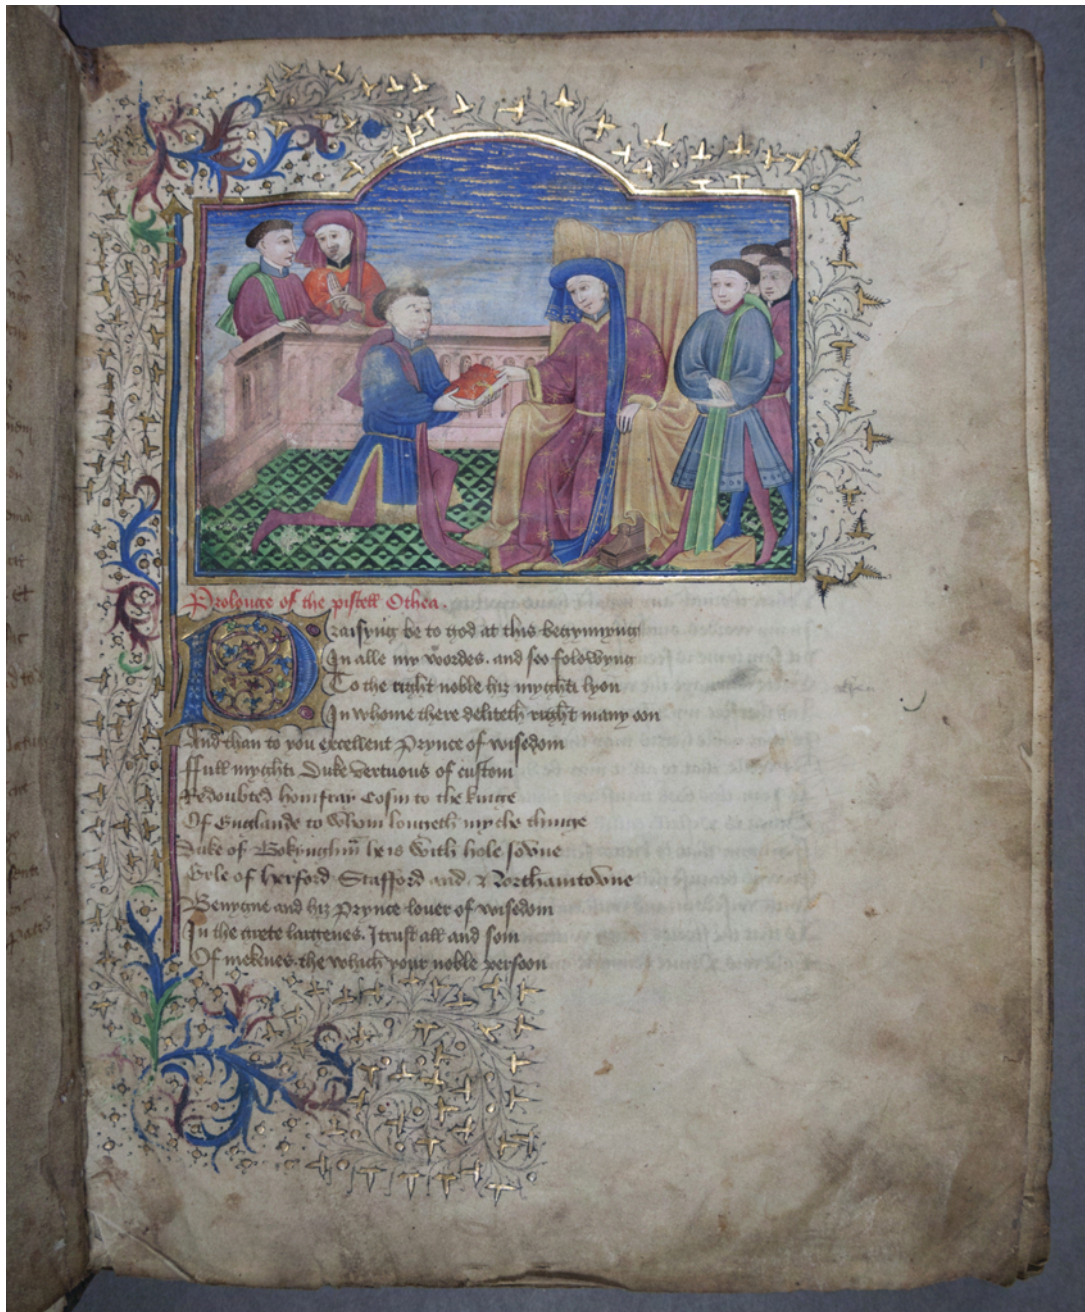 Prologue of the pistell Othea.
Praisyng be to god at this begynnyng
In alle my wordes. and soo folowyng
To the right noble hiz myghti lyon
In whome there deliteth right many oon
And than to you excellent Prynce of wisedom
ffull myghti Duke vertuous of custom
Redoubted Cosin to the kinge
Of Englande to whom longeth myche thinge
Duke of Bokynghm̄ he is with hole sowne
Erle of herford Stafford and Northamtowne
Benygne and hiz Prynce louer of wisedom
In the grete largenes. I trust all and som
Of mekenes. the which your noble persoon